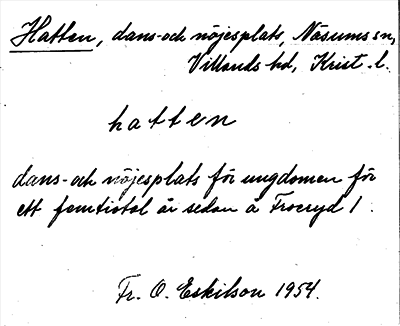 Hatten, dans- och nöjesplats, Näsums sn,
Villands hd, Krist. l.
hatten
dans- och nöjesplats för ungdomen för
ett femtiotal år sedan å Froeryd 1.
Fr. O. Eskilson 1954.